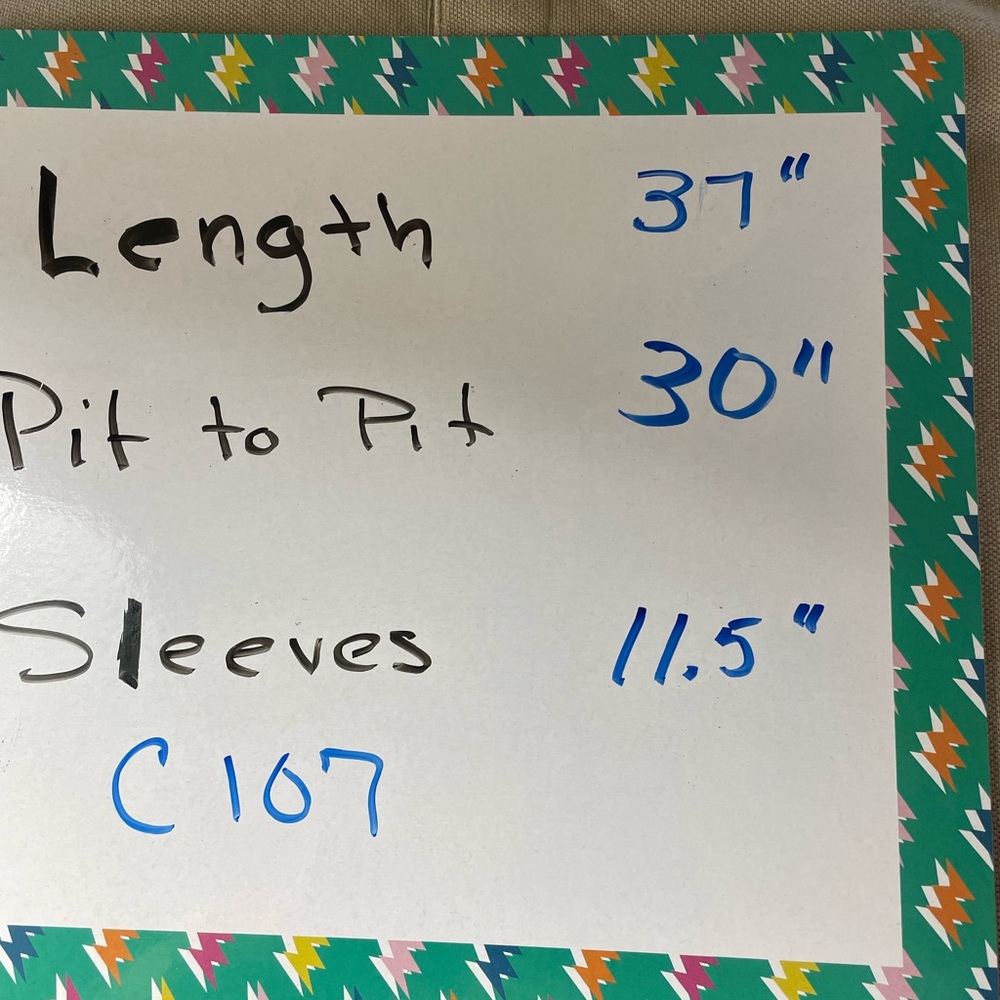 Length 37"
Pit to Pit 30"
Sleeves 11.5"
C107